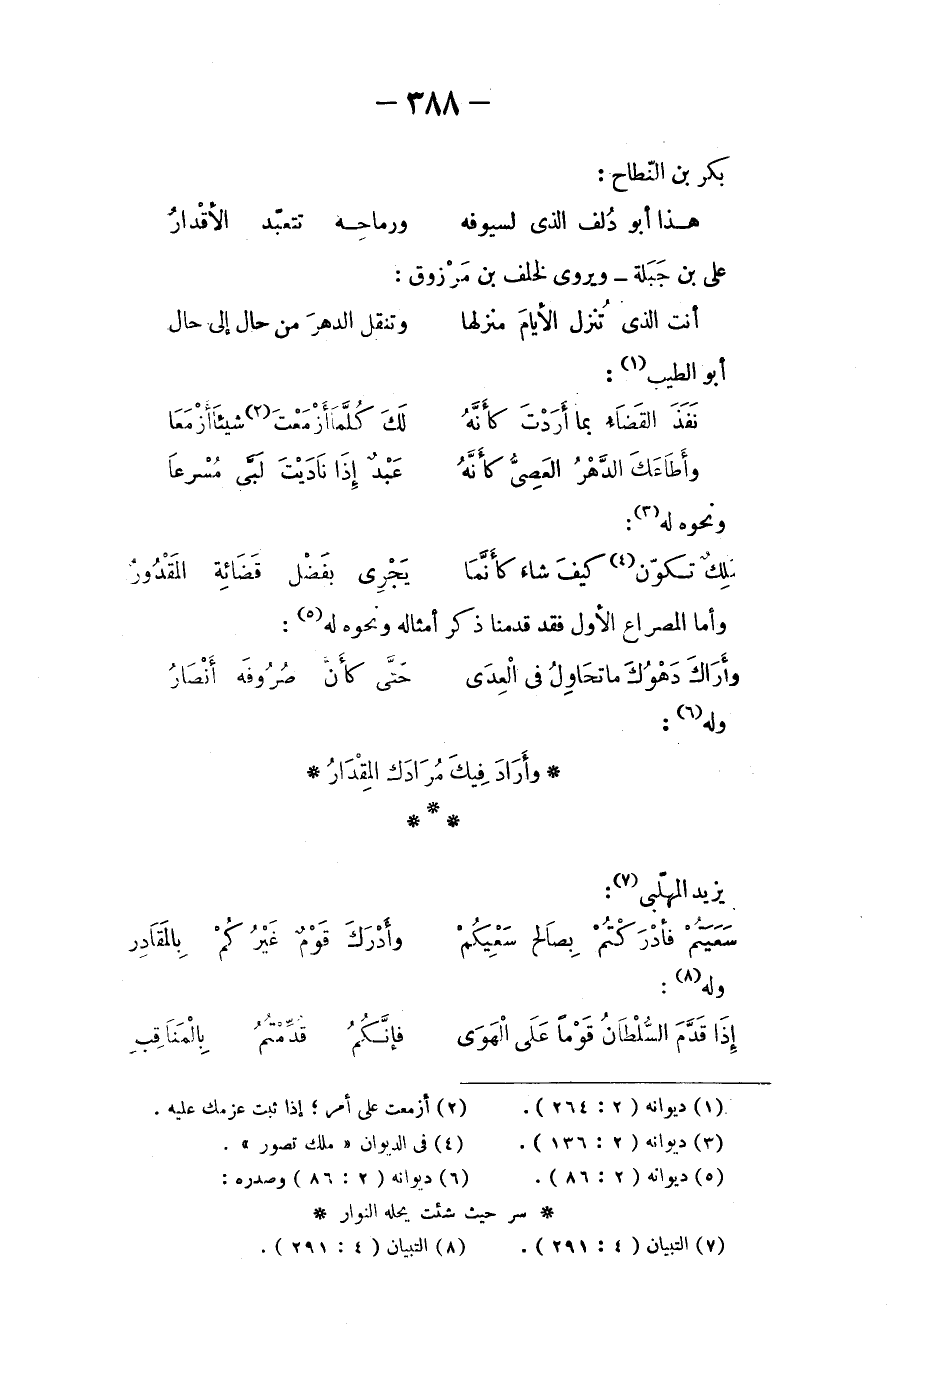 — ٣٨٨ —
بكر بن النّطاح :
هـذا أبو دُلف الذى لسيوفه ورماحِـه تتعبّد الأقْدارُ
على بن جَبَلة ـ ويروى لخلف بن مَرْزوق :
أنت الذى تُنزل الأيامَ منزلها وتنقل الدهرَ من حال إلى حال
أبو الطيب(١) :
نَفَذَ القَضَاء بما أَرَدْتَ كأَنَّهُ لَكَ كُلَّمَا أَزْمَعْتَ(٢) شيئاً أَزْمَعَا
وأَطَاعَكَ الدَّهْرُ العَصِىُّ كأَنَّهُ عَبْدٌ إِذَا نَادَيْتَ لَبَّى مُسْرعاَ
ونحوه له(٣) :
مَلِكٌ تـكوّن(٤) كيفَ شاء كأَنَّمَا يَجْرِى بفَضْل قَضَائِهِ المَقْدُورُ
وأما المصراع الأول فقد قدمنا ذكر أمثاله ونحوه له(٥) :
وأَرَاكَ دَهْرُكَ ماتحَاوِلُ فى الْعِدَى حَتَّى كأَنَّ صُرُوفَه أَنْصَارُ
وله(٦) :
* وأَرَادَ فِيكَ مُرَادَك المِقْدَارُ *
* * *
يزيد المهلّبى(٧) :
سَعَيْتُمْ فأَدْرَكْتُمْ بِصاَلِحِ سَعْيِكُمْ وأَدْرَكَ قَوْمٌ غَيْرُكُمْ بالمَقَادِرِ
وله(٨) :
إِذَا قَدَّمَ السُّلْطَانُ قَوْماً عَلَى الْهَوَى فإنَّـكُمُ قُدِّمْتُمُ بِالْمَنَاقِبِ
(١) ديوانه ( ٢ : ٢٦٤ ) . (٢) أزمعت على أمر ؛ إذا ثبت عزمك عليه .
(٣) ديوانه ( ٢ : ١٣٦ ) . (٤) فى الديوان « ملك تصور » .
(٥) ديوانه ( ٢ : ٨٦ ) . (٦) ديوانه ( ٢ : ٨٦ ) وصدره :
* سر حيث شئت يحله النوار *
(٧) التبيان ( ٤ : ٢٩١ ) . (٨) التبيان ( ٤ : ٢٩١ ) .